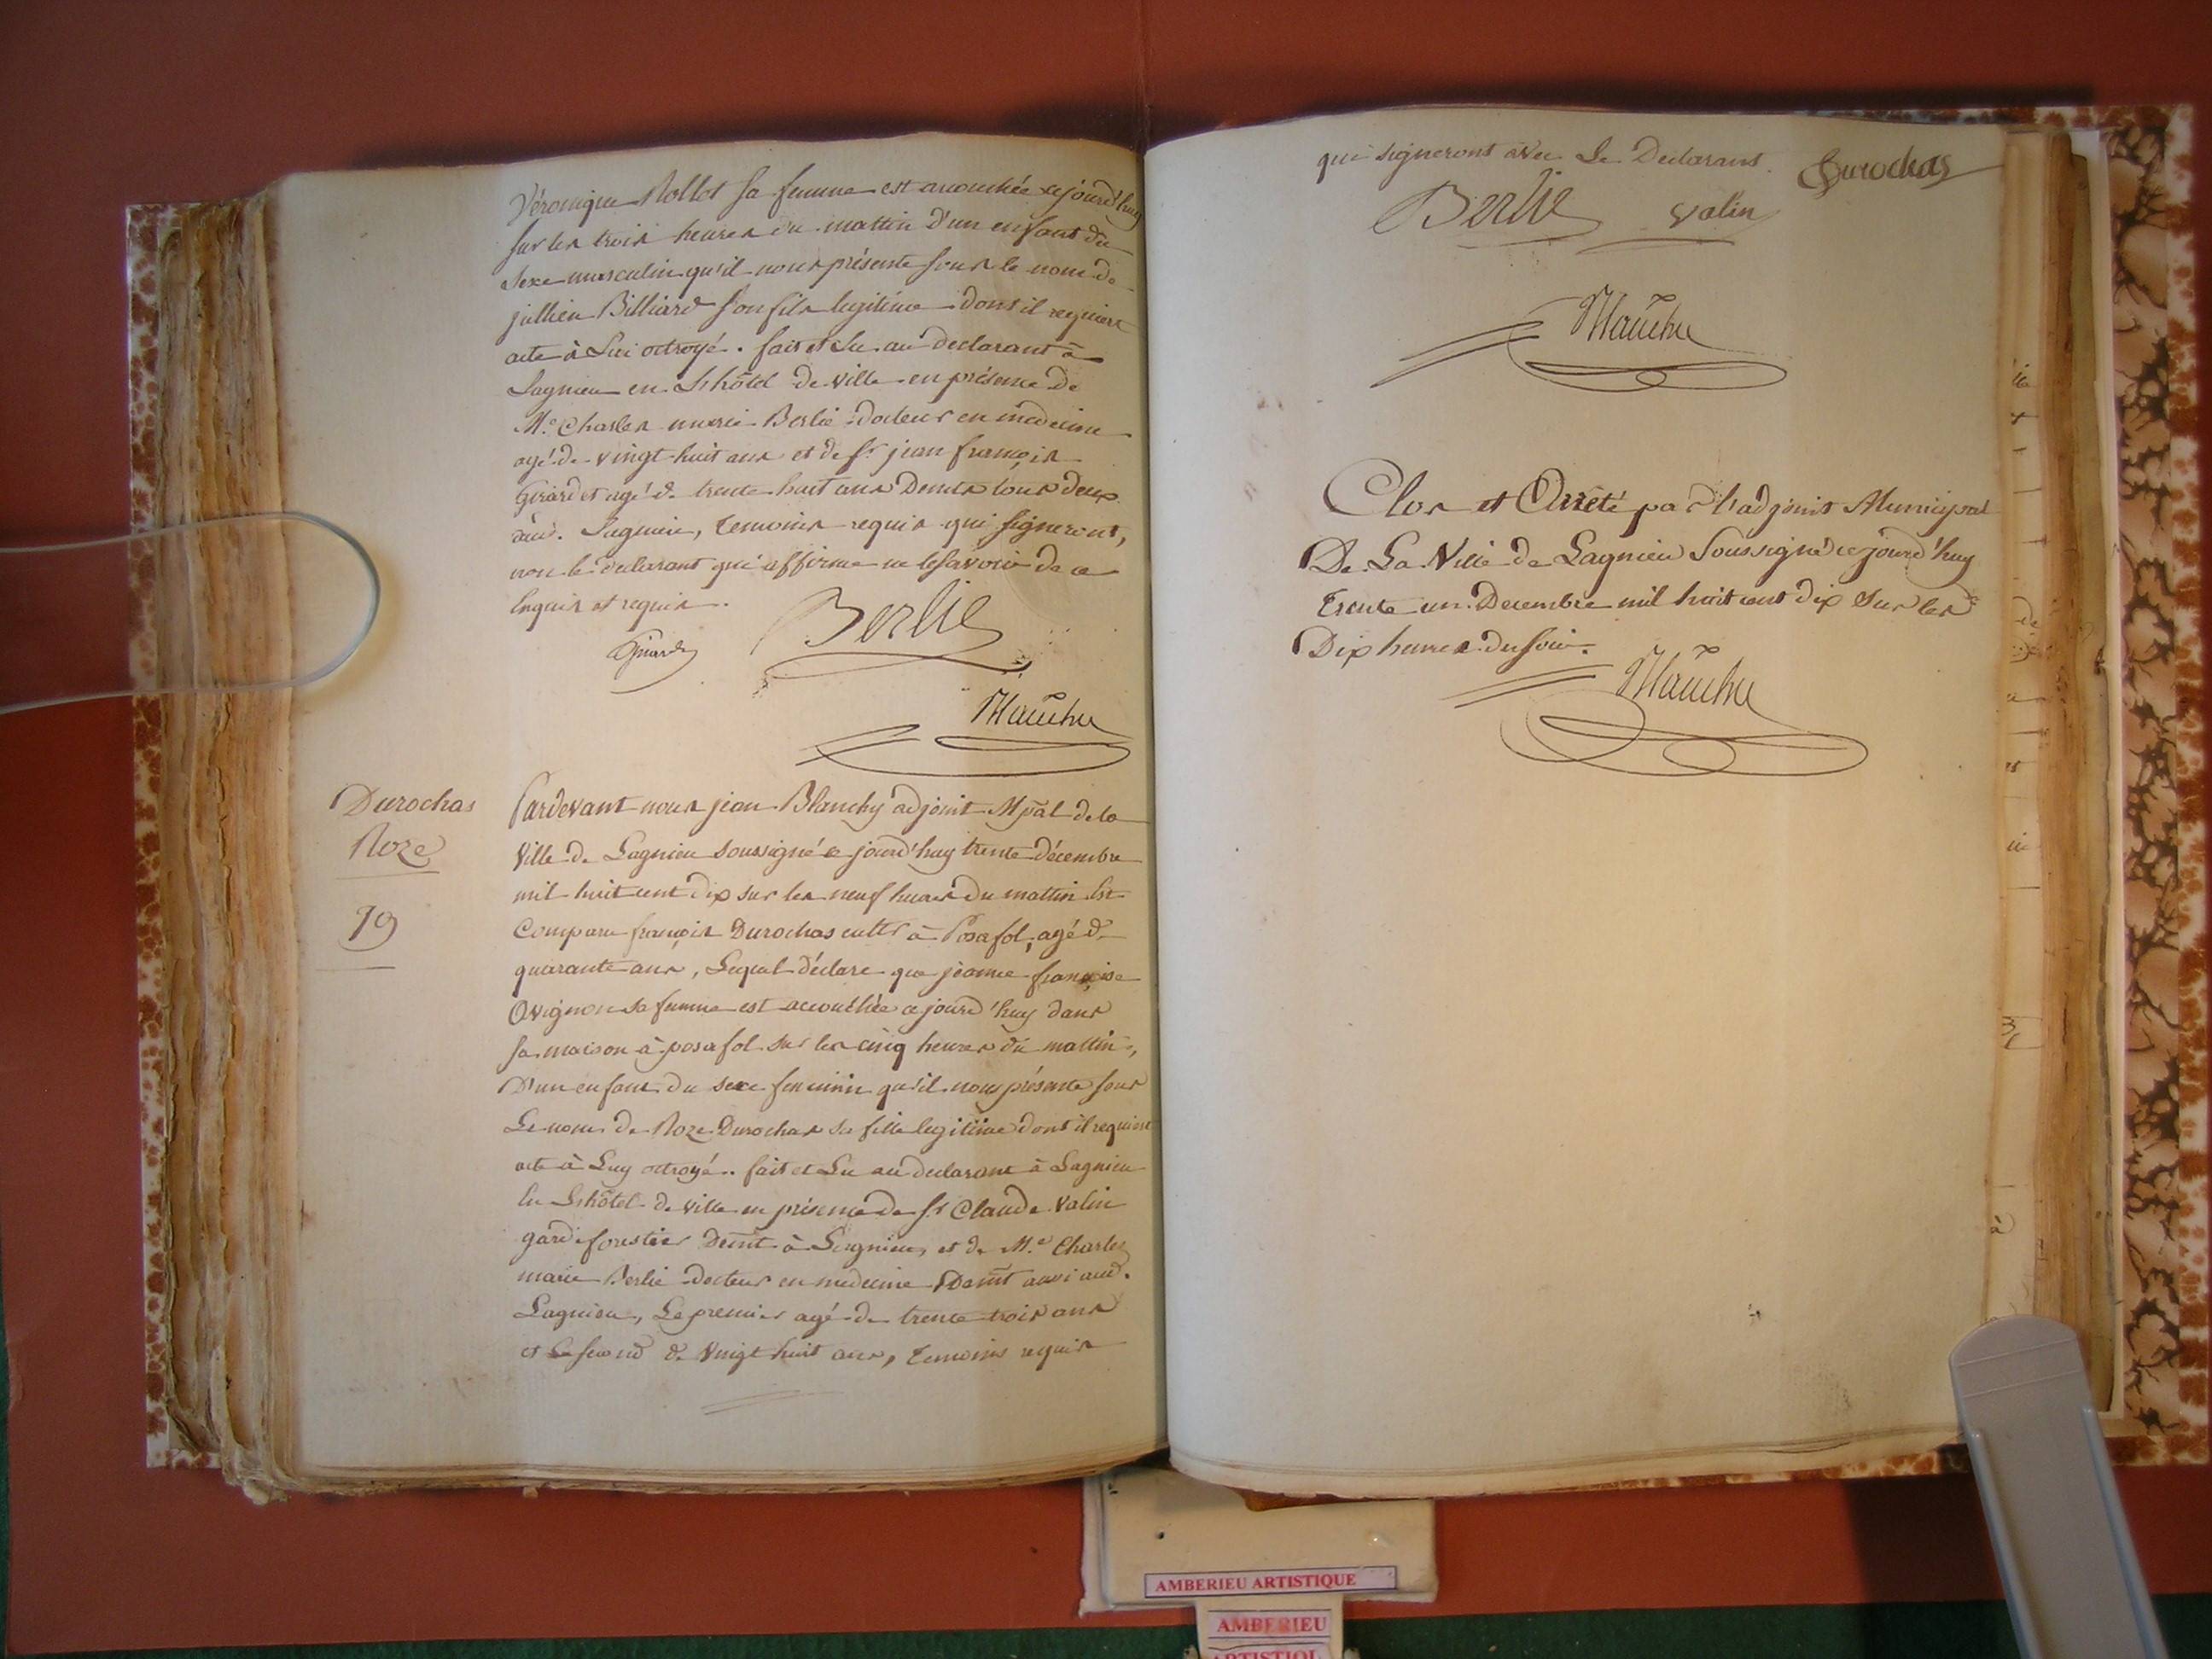 Véronique Rollot sa femme est accouchée cejourd'huy
sur les trois heures du mattin d'un enfant du
sexe masculin qu'il nous présente sous le nom de
jullien Billiard son fils legitime dont il requiert
acte à Lui octroyé. fait et Lu au declarant à
Lagnieu en L'hôtel de ville en présence de
M.e Charles marie Berlié docteur en médecine
agé de vingt huit ans et de sr jean françois
Girard et agé d. trente huit ans Demts tous deux
aud. Lagnieu, temoins requis qui signeront,
non le declarant qui affirme ne le savoir de ce
enquis et requis.
Girard Berlié
Blanchy
Durochas
Roze
79
Pardevant nous jean Blanchy adjoint Mpal de la
Ville de Lagnieu soussigné ce jourd'huy trente décembre
mil huit cent dix sur les neuf heures du mattin Est
Comparu françois Durochas cultr à Posafol, agé d.
quarante ans, Lequel déclare que jeanne françoise
Avignon sa femme est accouchée ce jourd'huy dans
sa maison à posafol sur les cinq heures du mattin,
D'un enfant du sexe feminin qu'il nous présente sous
Le nom de Roze Durochas sa fille legitime dont il requiert
acte à Luy octroyé.. fait et Lu au declarant à Lagnieu
En L'hôtel de ville en présence de sr Claude Valin
garde forestier Demt à Lagnieu, et de M.e Charles
marie Berlié docteur en médecine Demt aussi aud.
Lagnieu, Le premier agé de trente trois ans
et Le second de Vingt huit ans, temoins requis
qui signeront avec Le Declarant. Durochas
Berlié Valin
Blanchy
Clos et Arrêté par L'adjoint Municipal
De La Ville de Lagnieu Soussigné ce jourd'huy
trente un Decembre mil huit cent dix Sur les
Dix heures du soir.
Blanchy
AMBERIEU ARTISTIQUE
AMBERIEU